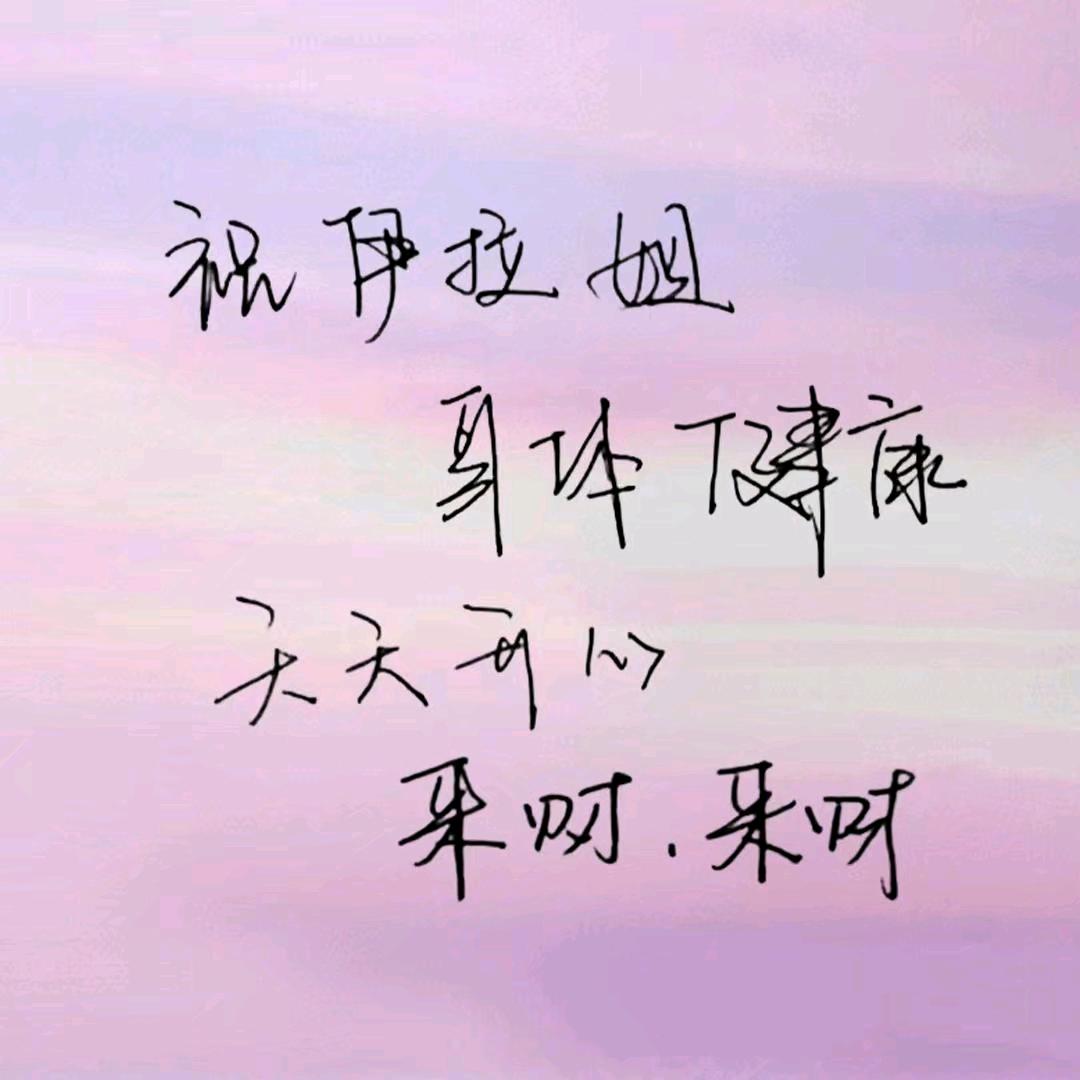 祝伊拉姐
身体健康
天天开心
来财.来财